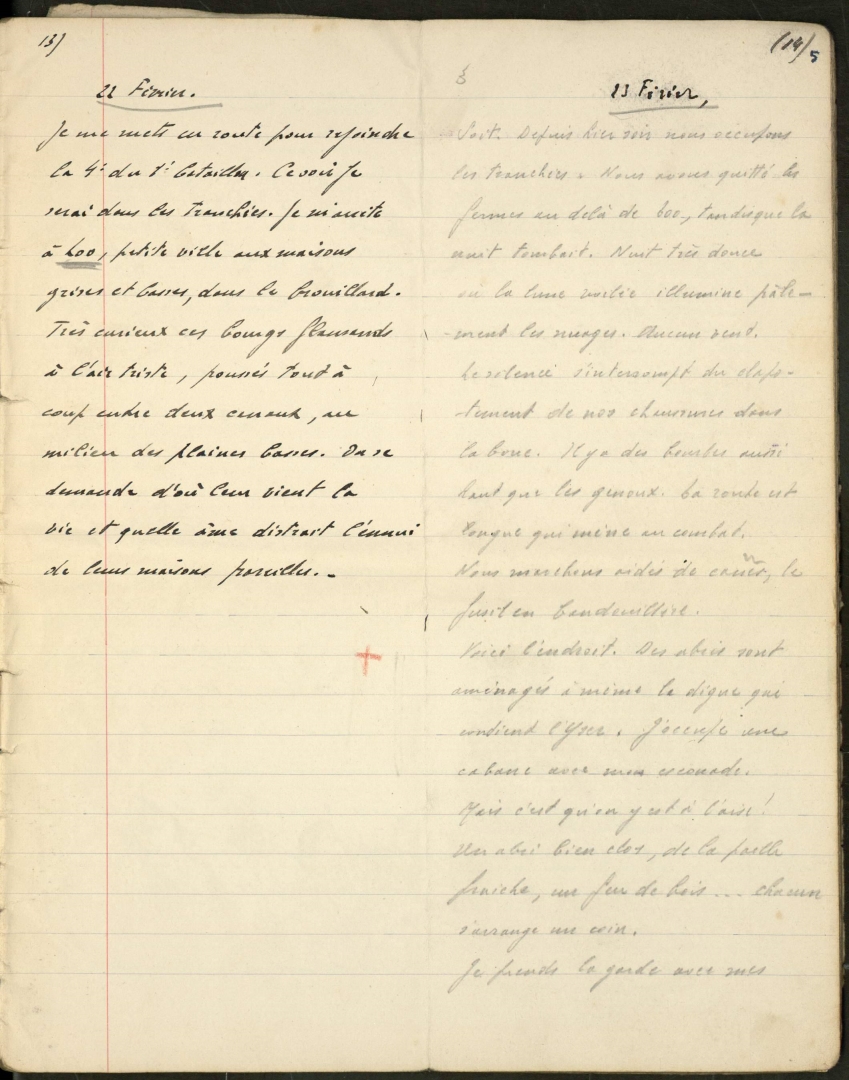 13)
22 Février.
Je me mets en route pour rejoindre
la 4e du 1e bataillon. Ce soir je
serai dans les tranchées. Je m'arrête
à Loo, petite ville aux maisons
grises et basses, dans le brouillard.
Très curieux ces bourgs flamands
à l'air triste, poussés tout à
coup entre deux canaux, au
milieu des plaines basses. On se
demande d'où leur vient la
vie et quelle âme distrait l'ennui
de leurs maisons pareilles.-
(14)
5
23 Février,
Soit. Depuis hier soir nous occupons
les tranchées. Nous avons quitté les
fermes au delà de Loo, tandisque la
nuit tombait. Nuit très douce
où la lune voilée illumine pâle-
-ment les nuages. Aucun vent.
Le silence s'interrompt du clapo-
-tement de nos chaussures dans
la boue. Il y a des bourbes aussi
haut que les genoux. La route est
longue qui mène au combat.
Nous marchons aidés de cannes, le
fusil en bandouillère.
Voici l'endroit. Des abris sont
aménagés à même la digue qui
contient l'Yser. J'occupe une
cabane avec mon escouade.
Mais c'est qu'on y est à l'aise!
Un abri bien clos, de la paille
fraiche, un feu de bois ... chacun
s'arrange un coin.
Je prends la garde avec mes